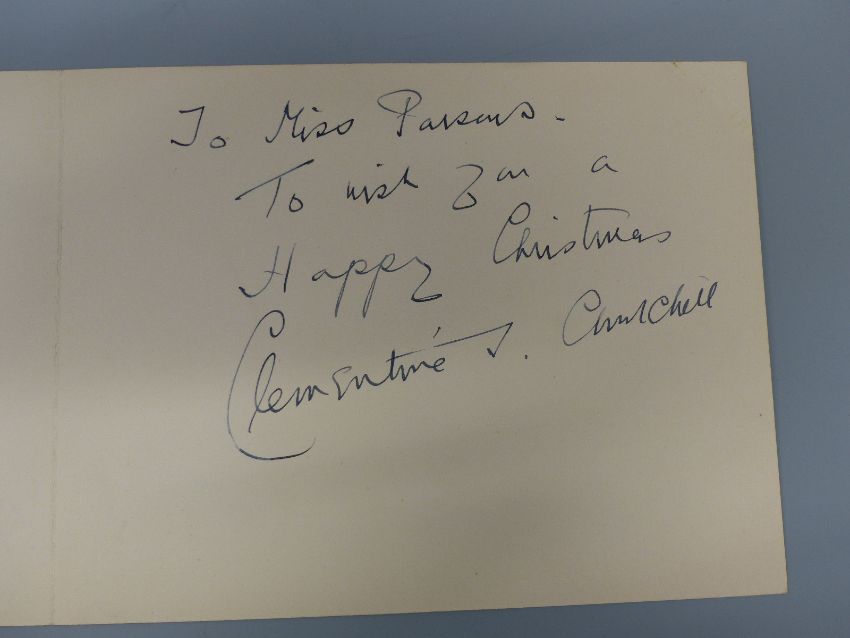 To Miss Parsons.
To wish you a
Happy Christmas
Clementine S. Churchill